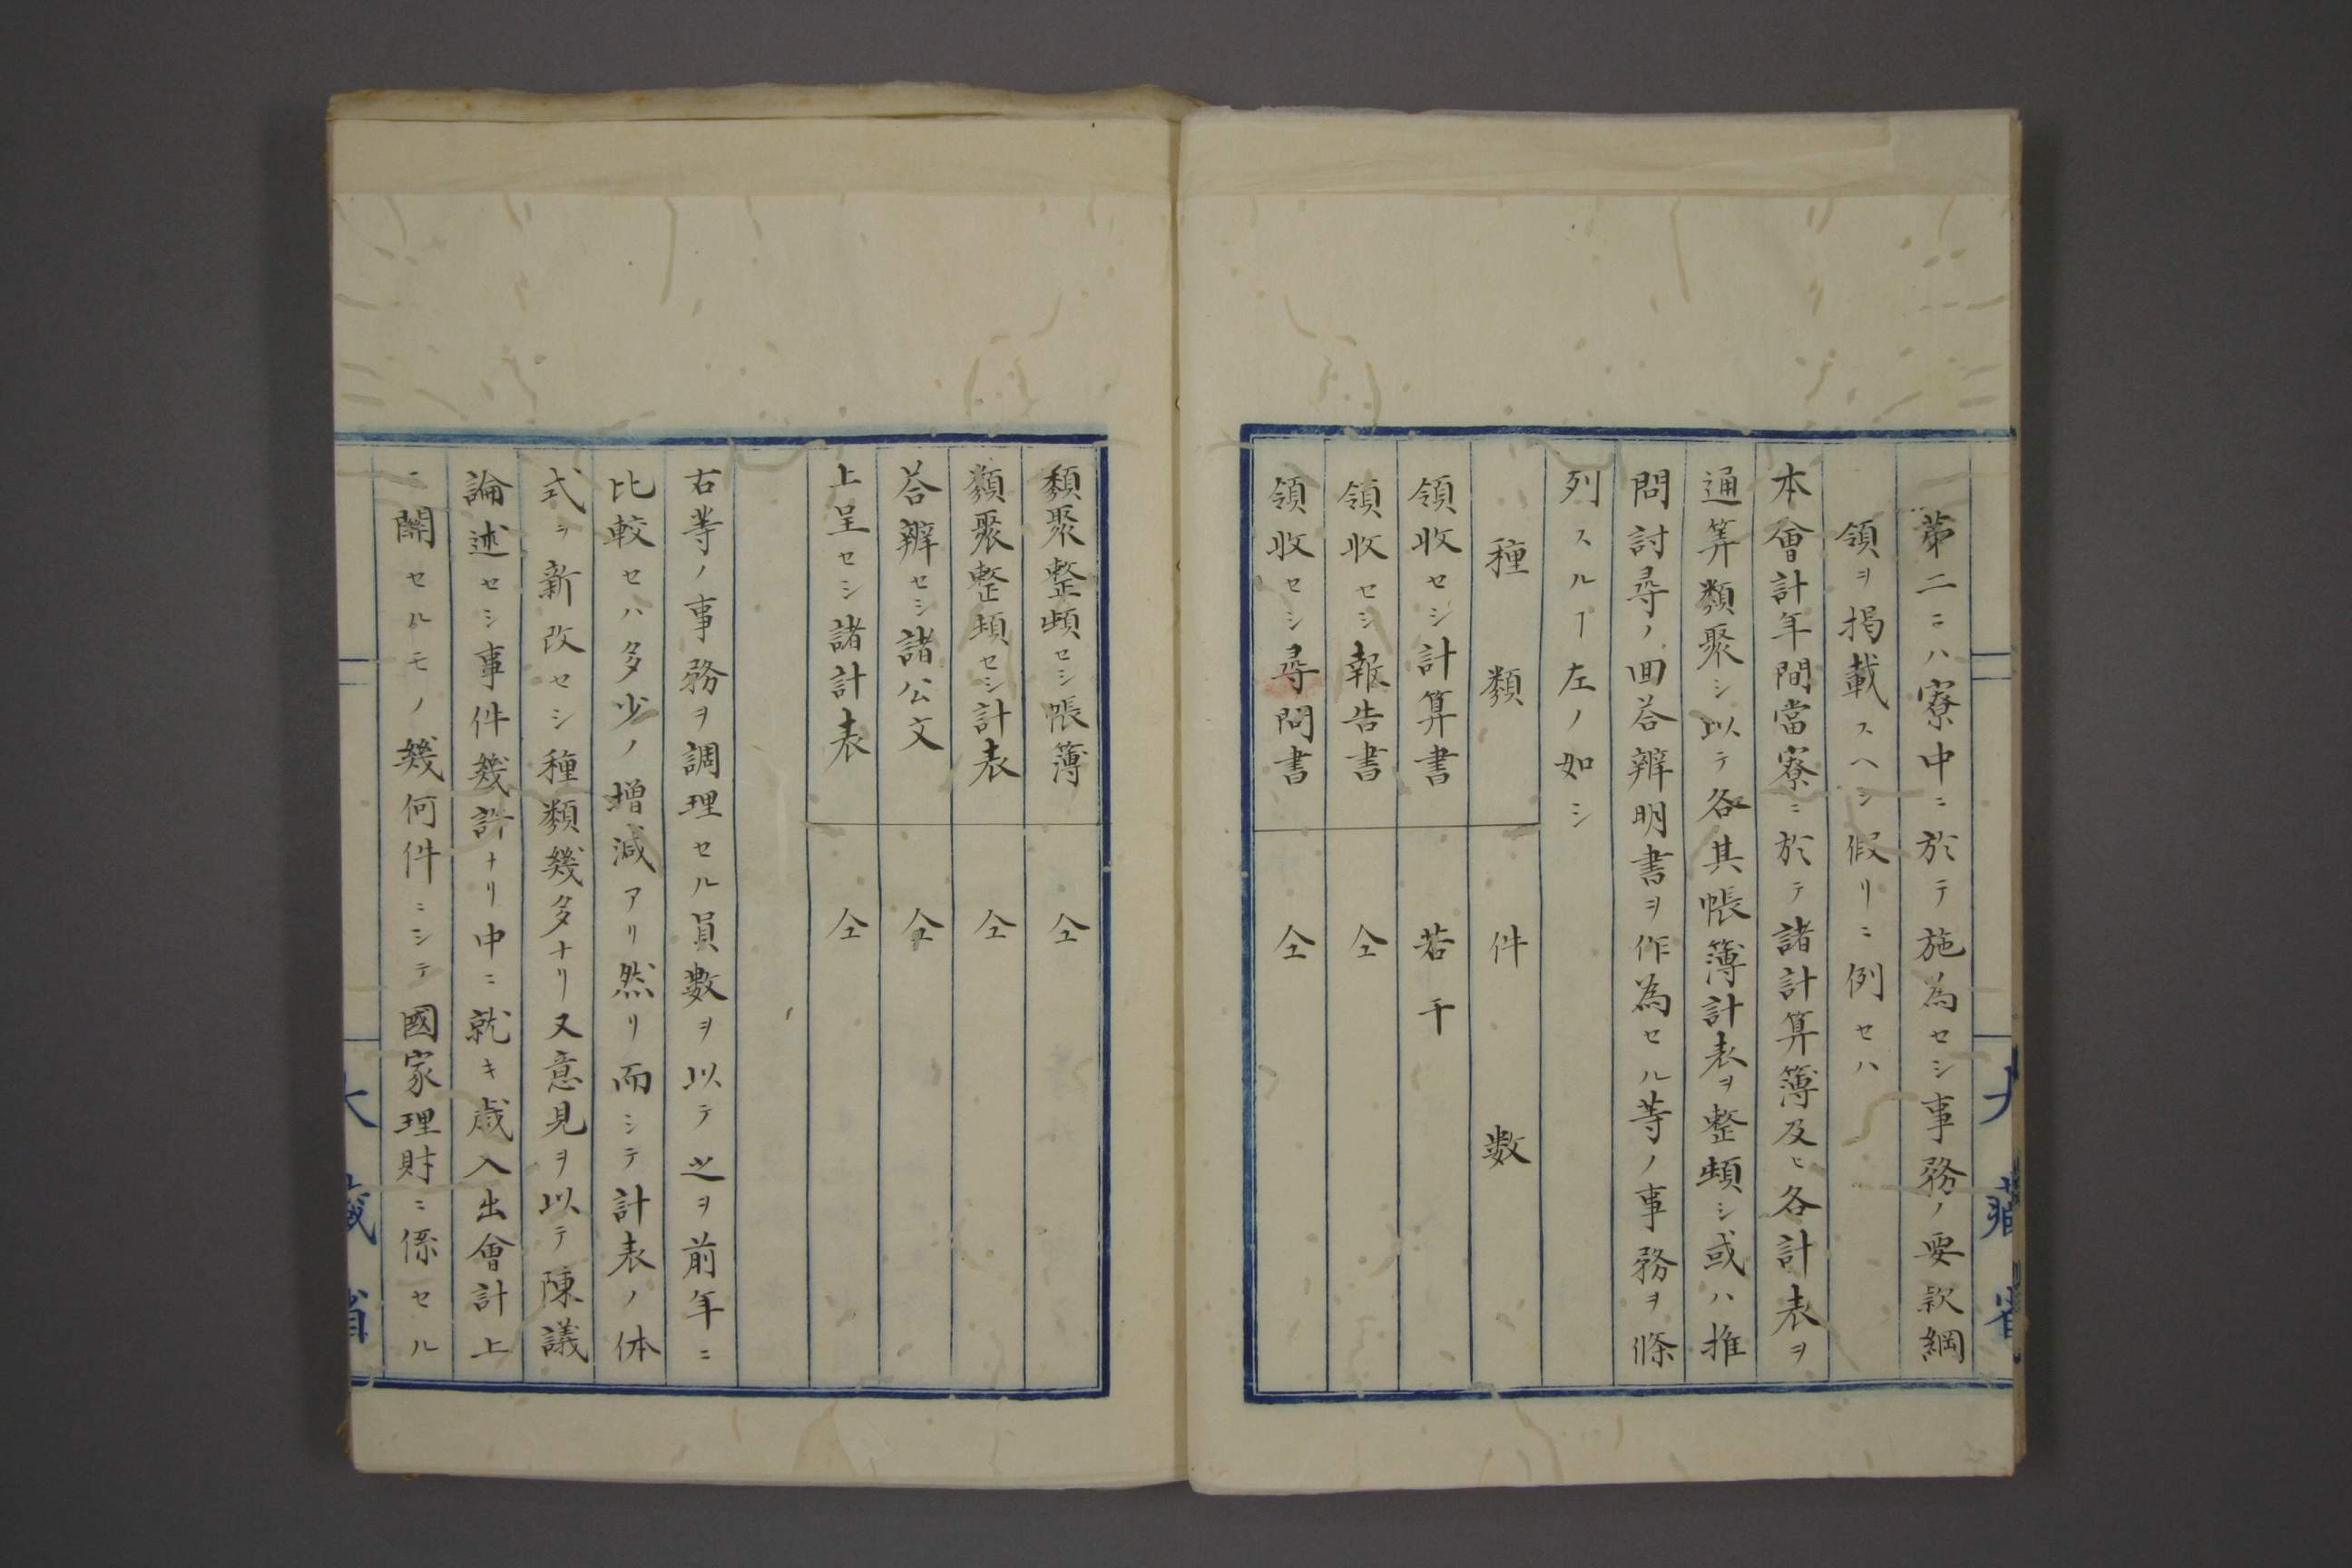 第二ニハ寮中ニ於テ施為セシ事務ノ要款綱
領ヲ掲載スヘシ假リニ例セハ
本會計年間當寮ニ於テ諸計算簿及ヒ各計表ヲ
通算類聚シ以テ各其帳簿計表ヲ整頓シ或ハ推
問討尋ノ回答辨明書ヲ作為セル等ノ事務ヲ條
列スルヿ左ノ如シ
種類 件数
領收セシ計算書 若干
領收セシ報告書 仝
領收セシ尋問書 仝
大藏省
類聚整頓セシ帳簿 仝
類聚整頓セシ計表 仝
荅辨セシ諸公文 仝
上呈セシ諸計表 仝
右等ノ事務ヲ調理セル員數ヲ以テ之ヲ前年ニ
比較セハ多少ノ増減アリ然リ而シテ計表ノ体
式ヲ新改セシ種類幾多ナリ又意見ヲ以テ陳議
論述セシ事件幾許ナリ中ニ就キ歳入出會計上
ニ關セルモノ幾何件ニシテ國家理財ニ係セル
大藏省